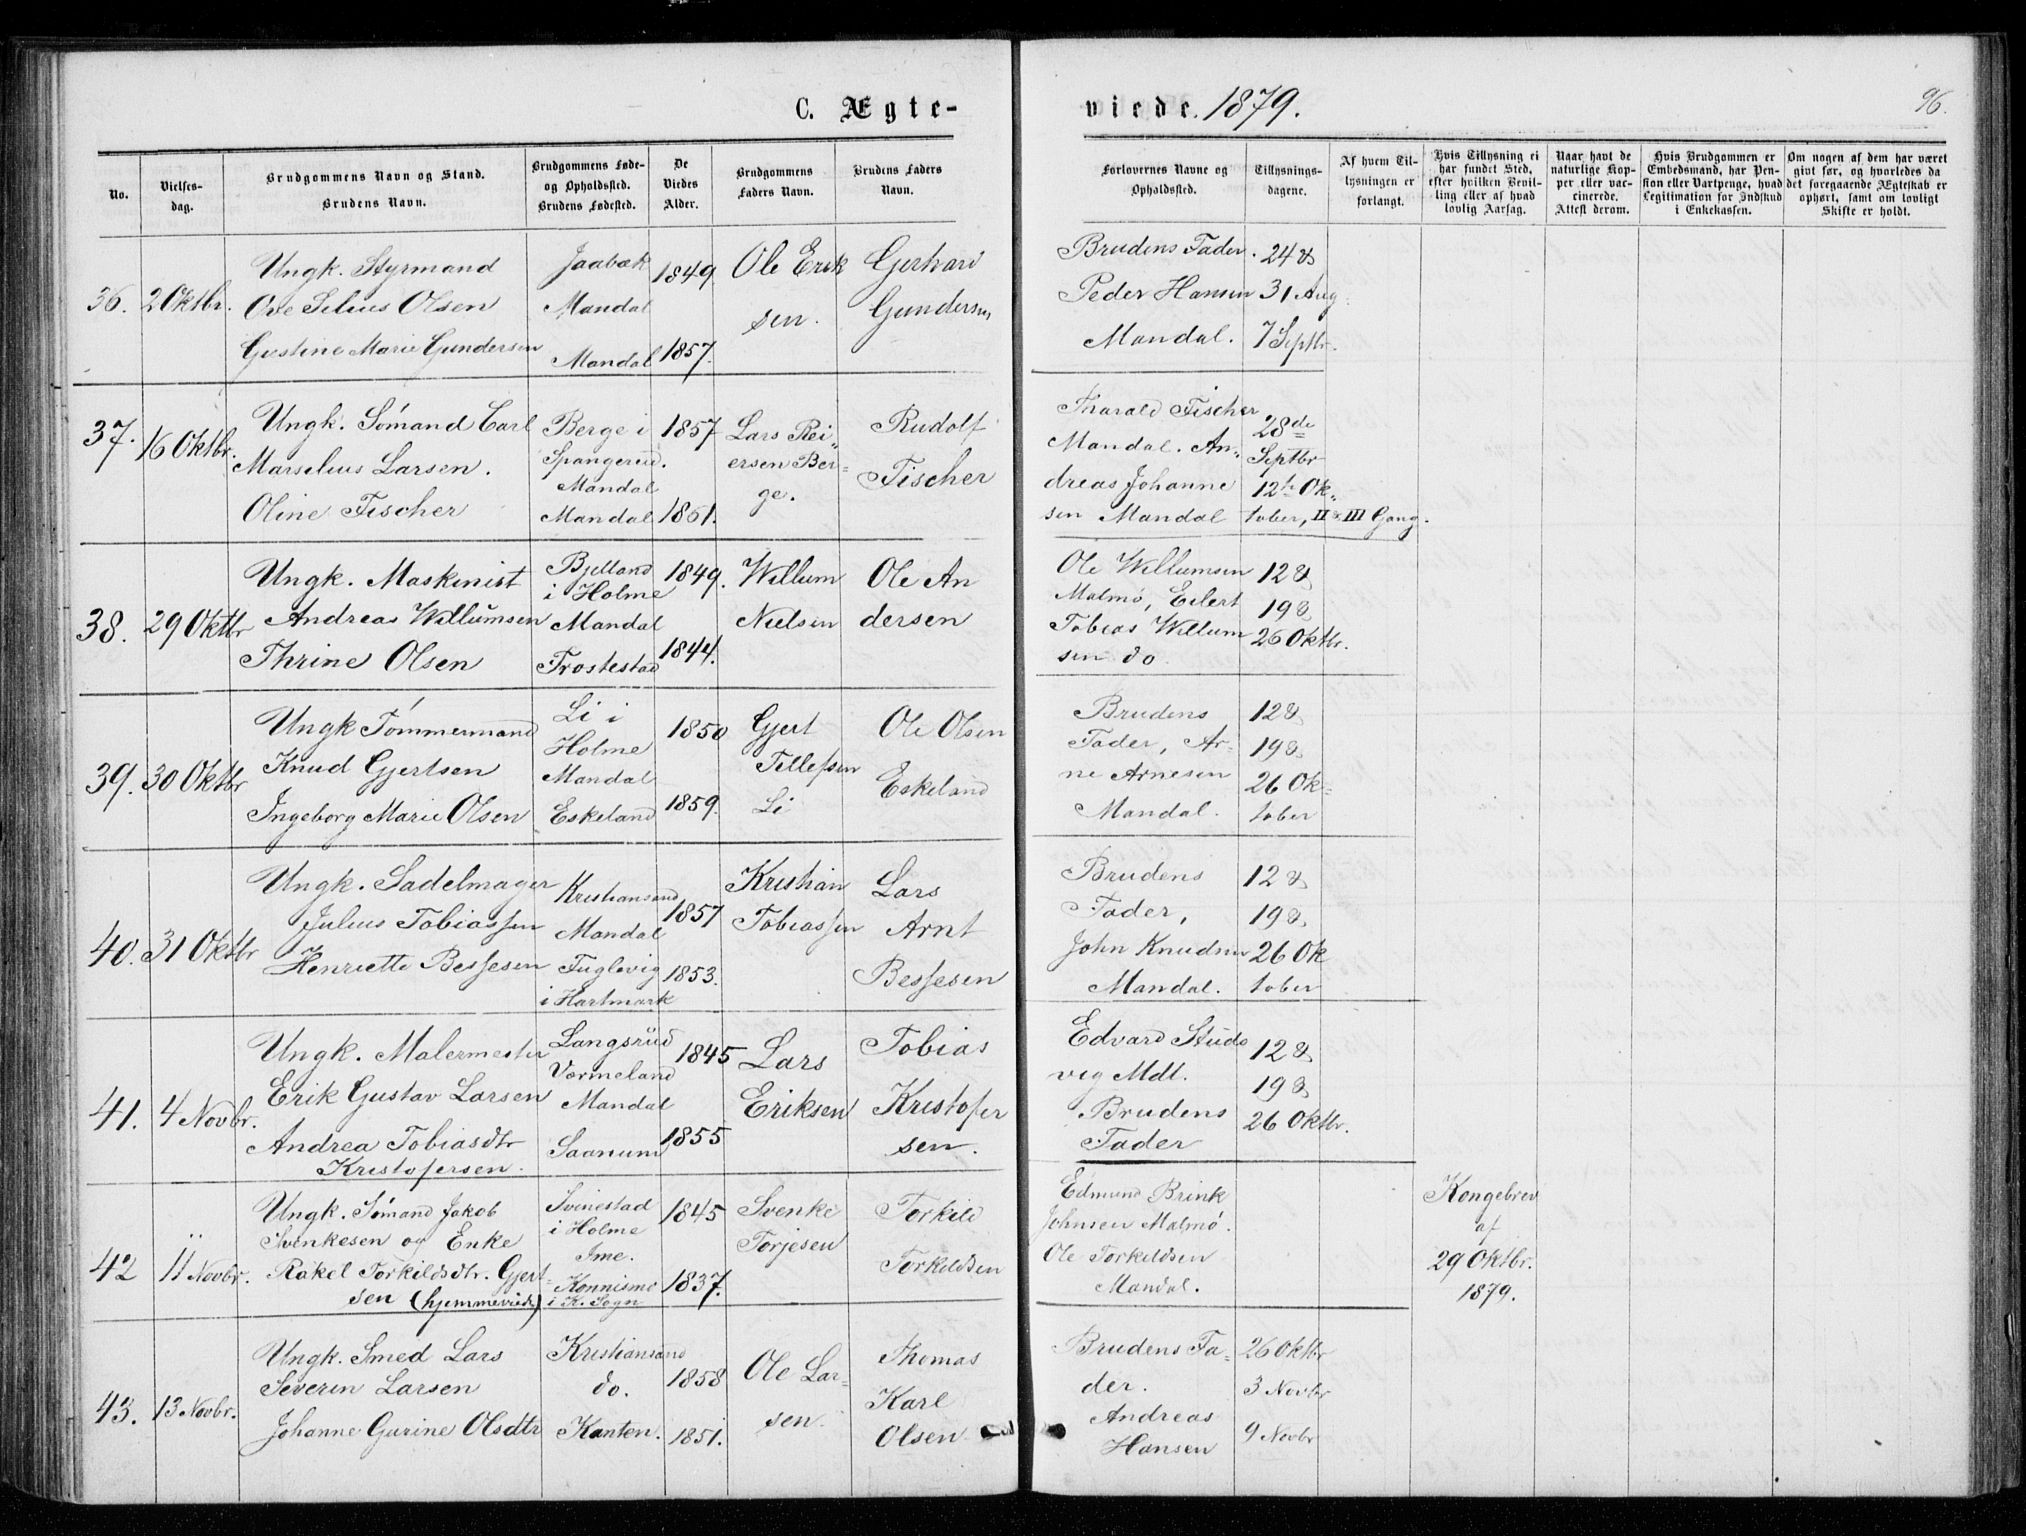 C. Ægte-
viede. 1879.
96.
No.
Vielses-
dag.
Brudgommens Navn og Stand.
Brudens Navn.
Brudgommens Føde-
og Opholdssted.
Brudens Fødested.
De
Viedes
Alder.
Brudgommens
Faders Navn.
Brudens Faders
Navn.
Forlovernes Navne og
Opholdssted.
Tillysnings-
dagene.
Af hvem Til-
lysningen er
forlangt.
Hvis Tillysning ei
har fundet Sted,
efter hvilken Bevil-
ling eller af hvad
lovlig Aarsag.
Naar havt de
naturlige Kop-
per eller vac-
cinerede.
Attest derom.
Hvis Brudgommen er
Embedsmand, har Pen-
sion eller Vartpenge, hvad
Legitimation for Indskud
i Enkekassen.
Om nogen af dem har været
givt før, og hvorledes da
det foregaaende Ægteskab er
ophørt, samt om lovligt
Skifte er holdt.
36.
2 Oktbr.
Ungk. Styrmand
Ove Selius Olsen
Gustine Marie Gundersen
Jaabæk
Mandal
Mandal
1849
1857.
Ole Erik
sen.
Gerhard
Gundersen
Brudens Fader.
Peder Hansen
Mandal.
24 &
31 Aug.
7 Septbr.
37.
16 Oktbr.
Ungk. Sømand Carl
Marselius Larsen.
Oline Fischer
Berge i
Spangerud.
Mandal
Mandal
1857
1861.
Lars Rei-
ersen Ber-
ge.
Rudolf
Fischer
Tharald Fischer
Mandal. An-
dreas Johanne
sen Mandal
28de
Septbr
12te Ok-
tober, II & III Gang.
38.
29 Oktbr
Ungk. Maskinist
Andreas Willumsen
Thrine Olsen
Bjelland
i Holme
Mandal
Frostestad
1849.
1844.
Willum
Nielsen
Ole An
dersen
Ole Willumsen
Malmø, Eilert
Tobias Willum
sen do
12 &
19 &
26 Oktbr.
39.
30 Oktbr
Ungk Tømmermand
Knud Gjertsen
Ingeborg Marie Olsen
Li i
Holme
Mandal
Eskeland
1850
1859.
Gjert
Tellefsen
Li
Ole Olsen
Eskeland
Brudens
Fader, Ar-
ne Arnesen
Mandal.
12 &
19 &
26 Ok-
tober
40.
31 Oktbr
Ungk. Sadelmager
Julius Tobiassen
Henriette Bessesen
Kristiansand
Mandal
Fuglevig
i Hartmark
1857
1853.
Kristian
Tobiassen
Lars
Arnt
Bessesen
Brudens
Fader,
John Knudsen
Mandal.
12 &
19 &
26 Ok
tober
41.
4 Novbr.
Ungk. Malermester
Erik Gustav Larsen
Andrea Tobiasdtr
Kristofersen.
Langsrud
Vermeland
Mandal
Saanum
1845
1855
Lars
Eriksen
Tobias
Kristofer
sen.
Edvard Studs
vig Mdl.
Brudens
Fader
12 &
19 &
26 Oktbr.
42
11 Novbr.
Ungk. Sømand Jakob
Svenkesen og Enke
Rakel Torkildsdtr. Gjert-
sen (hjemmeviede)
Svinestad
i Holme
Ime.
Konnismo
i K. Sogn
1845
1837.
Svenke
Torjesen
Torkild
Torkildsen
Edmund Brink
Johnsen Malmø.
Ole Torkildsen
Mandal.
Kongebrev
af
29 Oktbr.
1879.
43.
13 Novbr.
Ungk. Smed Lars
Severin Larsen
Johanne Gurine Olsdtr
Kristiansand
do.
Kanten.
1858
1851.
Ole Lar-
sen.
Thomas
Karl
Olsen
Brudens Fa-
der.
Andreas
Hansen
26 Oktbr
3 Novbr
9 Novbr